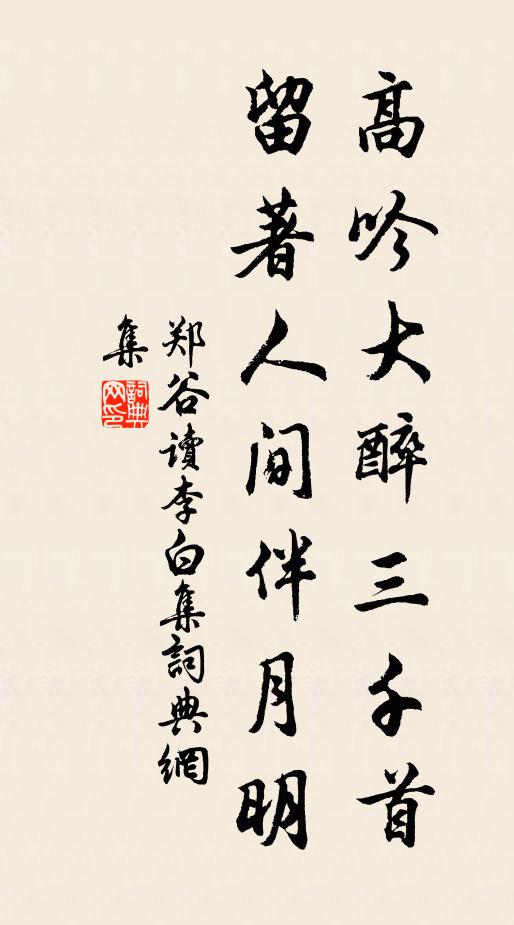 高吟大醉三千首
留著人间伴月明
郑谷读李白集詞典網
集
詞典
网印